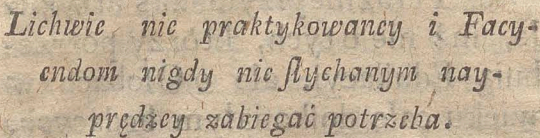 Lichwie nie praktykowaney i Facy-
endom nigdy nie ſłychanym nay-
prędzey zabiegać potrzeba.